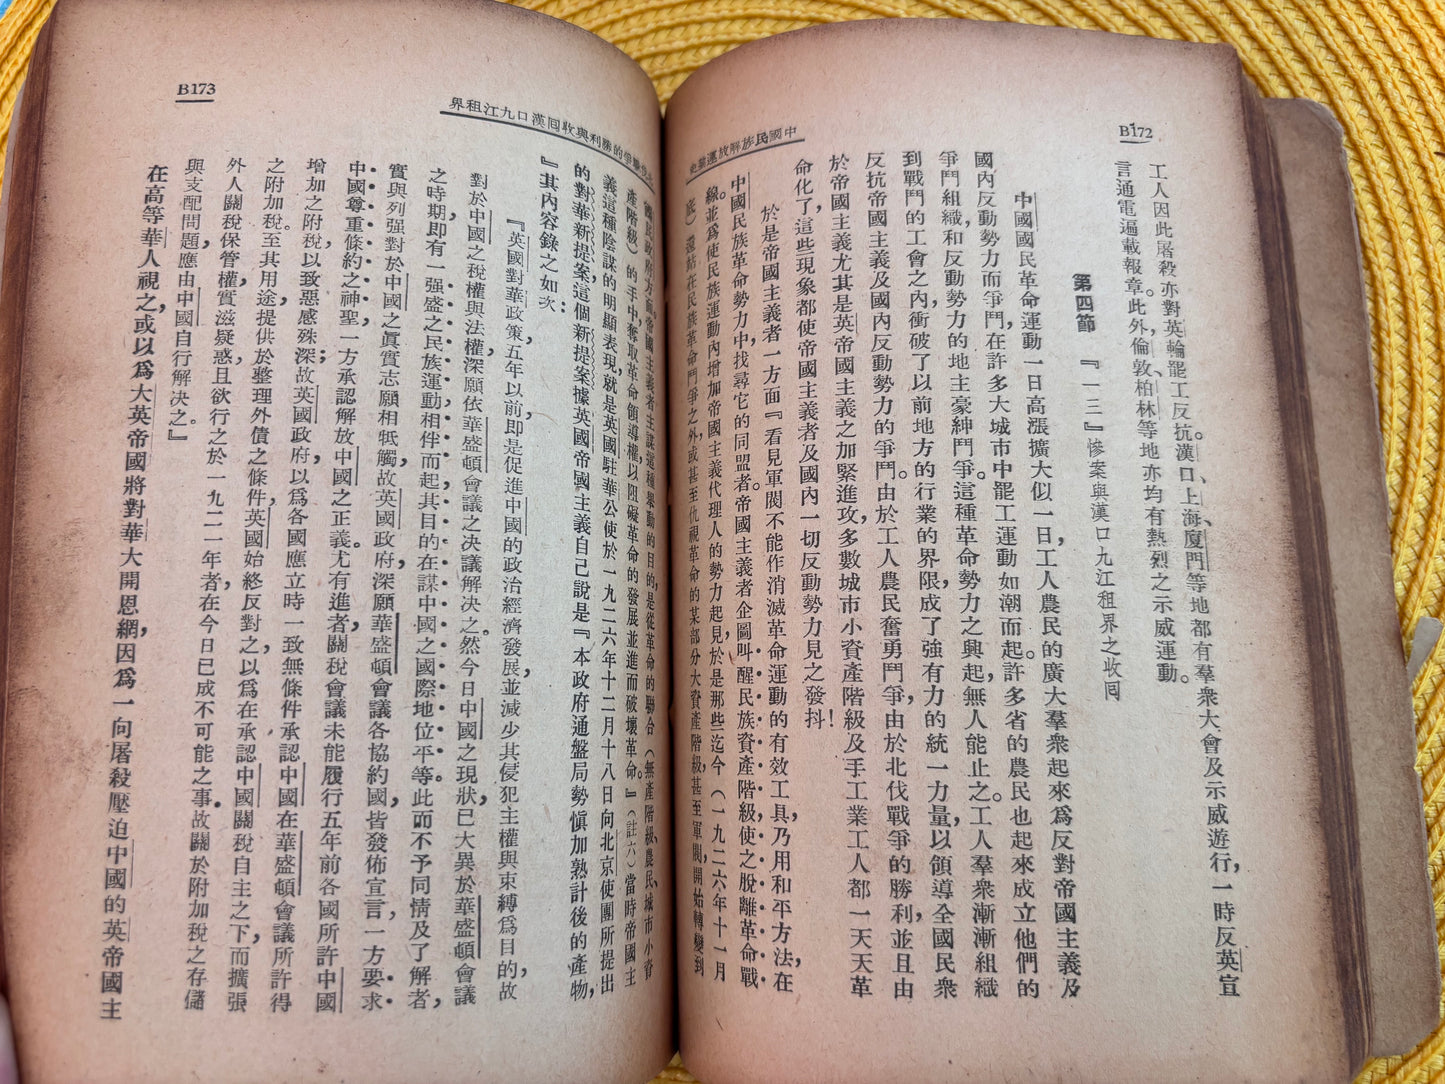 B172
中國民族解放運動史
工人因此屠殺亦對英輪罷工反抗。漢口、上海、廈門等地都有羣衆大會及示威遊行，一時反英宣
言通電遍載報章。此外，倫敦、柏林等地亦均有熱烈之示威運動。
第四節　『一三』慘案與漢口九江租界之收囘
中國國民革命運動一日高漲擴大似一日，工人農民的廣大羣衆起來爲反對帝國主義及
國內反動勢力而爭鬥，在許多大城市中罷工運動如潮而起。許多省的農民也起來成立他們的
爭鬥組織，和反動勢力的地主豪紳鬥爭。這種革命勢力之興起，無人能止之。工人羣衆漸漸組織
到戰鬥的工會之內，衝破了以前地方的行業的界限，成了強有力的統一力量，以領導全國民衆
反抗帝國主義及國內反動勢力的爭鬥。由於工人農民奮勇鬥爭，由於北伐戰爭的勝利，並且由
於帝國主義尤其是英帝國主義之加緊進攻，多數城市小資產階級及手工業工人都一天天革
命化了，這些現象都使帝國主義者及國內一切反動勢力見之發抖！
於是帝國主義者一方面『看見軍閥不能作消滅革命運動的有效工具，乃用和平方法，在
中國民族革命勢力中找尋它的同盟者。帝國主義者企圖叫醒民族資產階級，使之脫離革命戰
線，並爲使民族運動內增加帝國主義代理人的勢力起見，於是那些迄今（一九二六年十一月
底）還站在民族革命鬥爭之外或甚至仇視革命的某部分大資產階級，甚至軍閥，開始轉變到
B173
勝利與收囘漢口九江租界
國民政府方面。帝國主義者主謀這種舉動的目的是從革命的聯合（無產階級、農民、城市小資
產階級）的手中，奪取革命領導權，以阻礙革命的發展並進而破壞革命。』（註六）當時帝國主
義這種陰謀的明顯表現，就是英國駐華公使於一九二六年十二月十八日向北京使團所提出
的對華新提案。這個新提案據英國帝國主義自己說是『本政府通盤局勢愼加熟計後的產物，
』其內容錄之如次：
『英國對華政策，五年以前即是促進中國的政治經濟發展，並減少其侵犯主權與束縛爲目的，故
對於中國之稅權與法權，深願依華盛頓會議之決議解決之。然今日中國之現狀，已大異於華盛頓會議
之時期，即有一强盛之民族運動相伴而起，其目的在謀中國之國際地位平等。此而不予同情及了解者，
實與列强對於中國之眞實志願相牴觸，故英國政府，深願華盛頓會議各協約國，皆發佈宣言，一方要求
中國尊重條約之神聖，一方承認解放中國之正義。尤有進者，關稅會議未能履行五年前各國所許中國
增加之附稅，以致惡感殊深；故英國政府以爲各國應立時一致無條件承認中國在華盛頓會議所許得
之附加稅。至其用途，提供於整理外債之條件，英國始終反對之，以爲在承認中國關稅自主之下，而擴張
外人關稅保管權，實滋疑惑，且欲行之於一九二一年者，在今日已成不可能之事。故關於附加稅之存儲
與支配問題，應由中國自行解決之。』
在高等華人視之，或以爲大英帝國將對華大開恩網，因爲一向屠殺壓迫中國的英帝國主